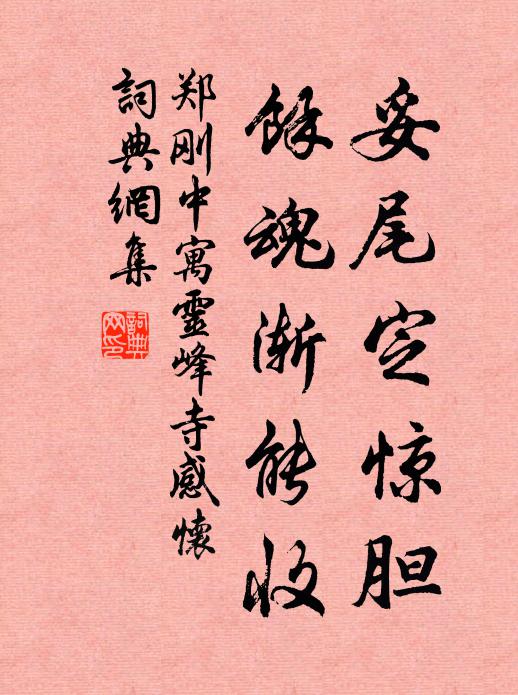 妥尾定惊胆
馀魂渐能收
郑刚中寓靈峰寺感懷
詞典網集
詞典网印